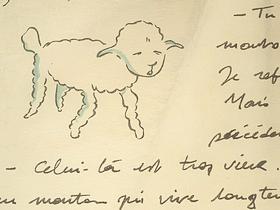 - Tu
mouto
Je ref
Mais
précéden
- Celui-là est trop vieux.
un mouton qui vive longtem